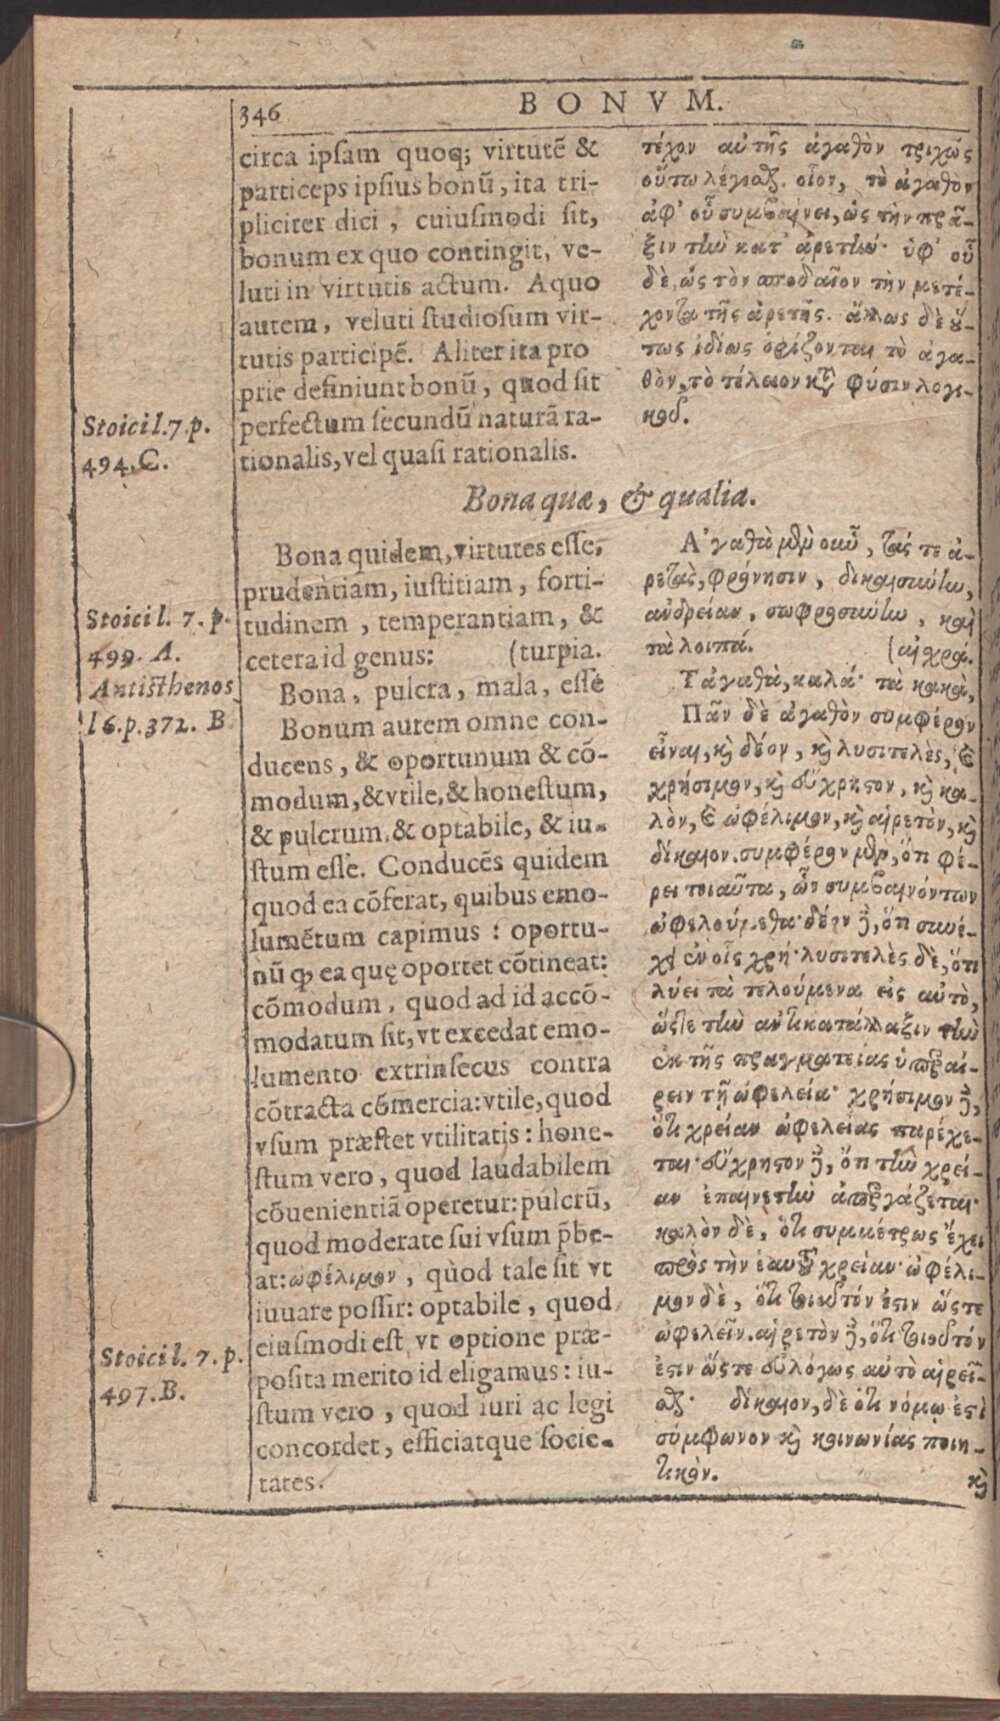 346
BONVM.
circa ipsam quoq; virtutē &
particeps ipsius bonū, ita tri-
pliciter dici, cuiusmodi sit,
bonum ex quo contingit, ve-
luti in virtutis actum. A quo
autem, veluti studiosum vir-
tutis participē. Aliter ita pro
prie definiunt bonū, quod sit
perfectum secundū naturā ra-
tionalis, vel quasi rationalis.
τέχον αὐτῆς ἀγαθὸν τριχῶς
οὕτω λέγεσθαι. οἷον, τὸ ἀγαθὸν
ἀφ' οὗ συμβαίνει, ὡς τὴν πρᾶ-
ξιν τὴν κατ' ἀρετήν· ὑφ' οὗ
δὲ, ὡς τὸν σπουδαῖον τὴν μετέ-
χοντα τῆς ἀρετῆς. ἄλλως δὲ οὕ-
τως ἰδίως ὁρίζονται τὸ ἀγα-
θὸν, τὸ τέλειον κατὰ φύσιν λογι-
κοῦ.
Stoici l.7.p.
494.C.
Bona quæ, & qualia.
Bona quidem, virtutes esse,
prudentiam, iustitiam, forti-
tudinem, temperantiam, &
cetera id genus: (turpia.
Bona, pulcra, mala, esse
Bonum autem omne con-
ducens, & oportunum & cō-
modum, & vtile, & honestum,
& pulcrum, & optabile, & iu-
stum esse. Conducēs quidem
quod ea cōferat, quibus emo-
lumētum capimus: oportu-
nū ꝙ ea quę oportet cōtineat:
cōmodum, quod ad id accō-
modatum sit, vt excedat emo-
lumento extrinsecus contra
cōtracta cōmercia: vtile, quod
vsum præstet vtilitatis: hone-
stum vero, quod laudabilem
cōuenientiā operetur: pulcrū,
quod moderate sui vsum p̄be-
at: ὠφέλιμον, quòd tale sit vt
iuuare possit: optabile, quod
eiusmodi est vt optione præ-
posita merito id eligamus: iu-
stum vero, quod iuri ac legi
concordet, efficiatque socie-
tates.
Ἀγαθὰ μὲν οὖν, τάς τε ἀ-
ρετὰς, φρόνησιν, δικαιοσύνην,
ἀνδρείαν, σωφροσύνην, καὶ
τὰ λοιπά. (αἰχρά.
Τἀγαθὰ, καλά· τὰ κακὰ,
Πᾶν δὲ ἀγαθὸν συμφέρον
εἶναι, καὶ δέον, καὶ λυσιτελὲς, καὶ
χρήσιμον, καὶ εὔχρηστον, καὶ κα-
λὸν, καὶ ὠφέλιμον, καὶ αἱρετὸν, καὶ
δίκαιον. συμφέρον μὲν, ὅτι φέ-
ρει τοιαῦτα, ὧν συμβαινόντων
ὠφελούμεθα· δέον δὲ, ὅτι συνέ-
χει ἐν οἷς χρή· λυσιτελὲς δὲ, ὅτι
λύει τὰ τελούμενα εἰς αὐτὸ,
ὥστε τὴν ἀντικατάλλαξιν τὴν
ἐκ τῆς πραγματείας ὑπεραί-
ρειν τῇ ὠφελείᾳ· χρήσιμον δὲ,
ὅτι χρείαν ὠφελείας παρέχε-
ται· εὔχρηστον δὲ, ὅτι τὴν χρεί-
αν ἐπαινετὴν ἀπεργάζεται·
καλὸν δὲ, ὅτι συμμέτρως ἔχει
πρὸς τὴν ἑαυτοῦ χρείαν· ὠφέλι-
μον δὲ, ὅτι τοιοῦτόν ἐστιν ὥστε
ὠφελεῖν. αἱρετὸν δὲ, ὅτι τοιοῦτόν
ἐστιν ὥστε εὐλόγως αὐτὸ αἱρεῖ-
σθαι. δίκαιον, δὲ ὅτι νόμῳ ἐστὶ
σύμφωνον καὶ κοινωνίας ποιη-
τικόν.
καὶ
Stoici l. 7. p.
499. A.
Antisthenos
l6.p.372. B
Stoici l. 7. p.
497.B.